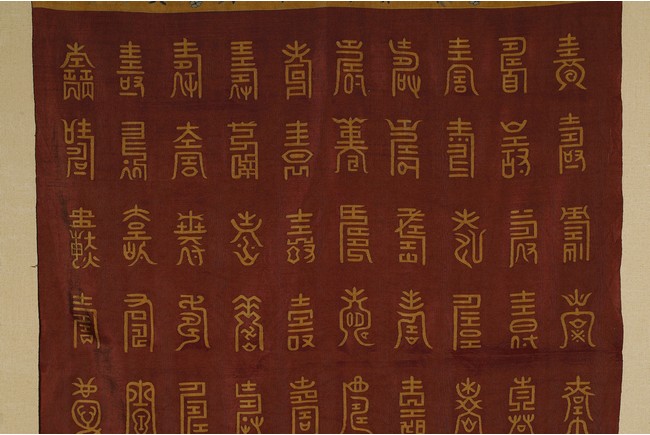 壽壽壽壽壽
壽壽壽壽壽
壽壽壽壽壽
壽壽壽壽壽
壽壽壽壽壽
壽壽壽壽壽
壽壽壽壽壽
壽壽壽壽壽
壽壽壽壽壽
壽壽壽壽壽